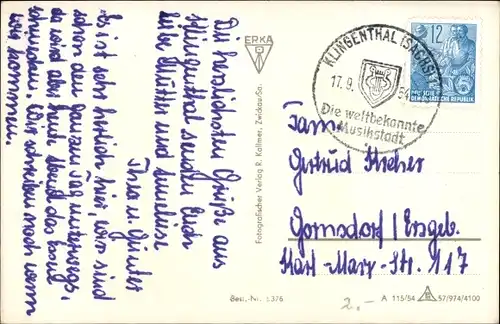 Die herzlichsten Grüße aus
Klingenthal senden Euch
liebe Mutter und
Thea u. Günter
Es ist sehr herrlich hier, wir sind
schon den ganzen Tag unterwegs,
da wird aber heute Abend das Bett
Wir schreiben noch wenn
wir kommen.
ERKA
Fotografischer Verlag R. Kallmer, Zwickau-Sa.
Best.-Nr. 376
KLINGENTHAL (SACHS)
17.9.
Die weltbekannte
Musikstadt
12
DEUTSCHE
DEMOKRATISCHE REPUBLIK
Fam.
Gertrud Fischer
Gornsdorf/Erzgeb.
Karl-Marx-Str. 117
2.-
A 115/54 57/974/4100